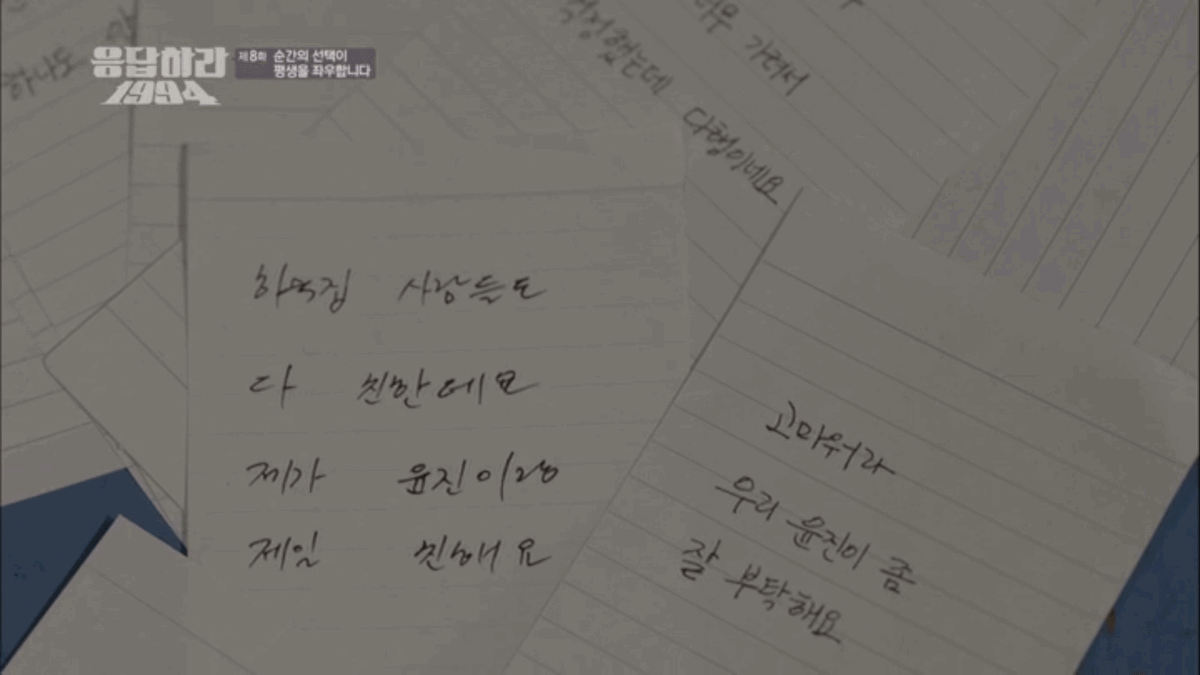 응답하라
1994
제8화 순간의 선택이
평생을 좌우합니다
하나도
걱정했는데 다행이네요
가려서
하숙집 사람들도
다 친한데요
제가 윤진이랑
제일 친해요
고마워라
우리 윤진이 좀
잘 부탁해요